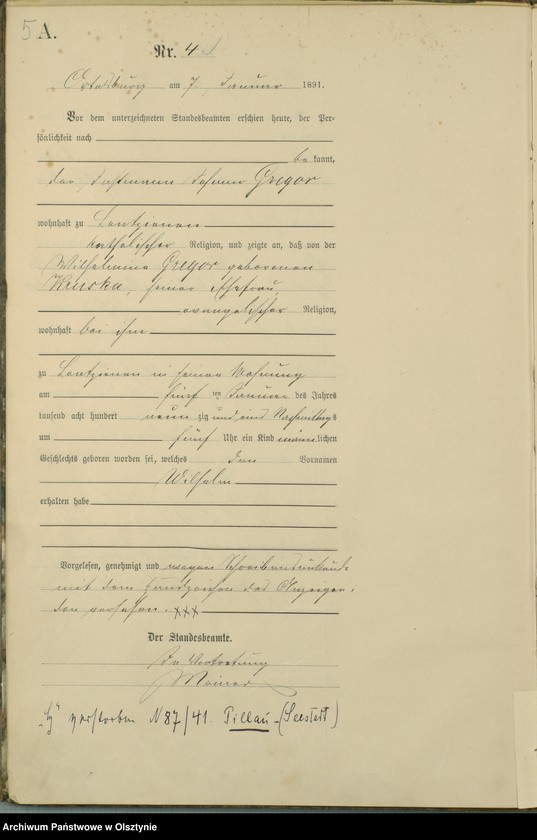 5 A.
Nr. 4
Ortelsburg am 7. Januar 1891.
Vor dem unterzeichneten Standesbeamten erschien heute, der Per-
sönlichkeit nach
be kannt,
der Instmann Johann Gregor
wohnhaft zu Lentzienen
katholischer Religion, und zeigte an, daß von der
Wilhelmine Gregor geborenen
Kruska, seiner Ehefrau,
evangelischer Religion,
wohnhaft bei ihm
zu Lentzienen in seiner Wohnung
am fünf ten Januar des Jahres
tausend acht hundert neun zig und eins Nachmittags
um fünf Uhr ein Kind männ lichen
Geschlechts geboren worden sei, welches den Vornamen
Wilhelm
erhalten habe
Vorgelesen, genehmigt und wegen Schreibensunkunde
mit dem Handzeichen des Anzeigen-
den versehen. xxx
Der Standesbeamte.
In Vertretung
"H" verstorben N 87/41. Pillau - (Seestadt)
Archiwum Państwowe w Olsztynie